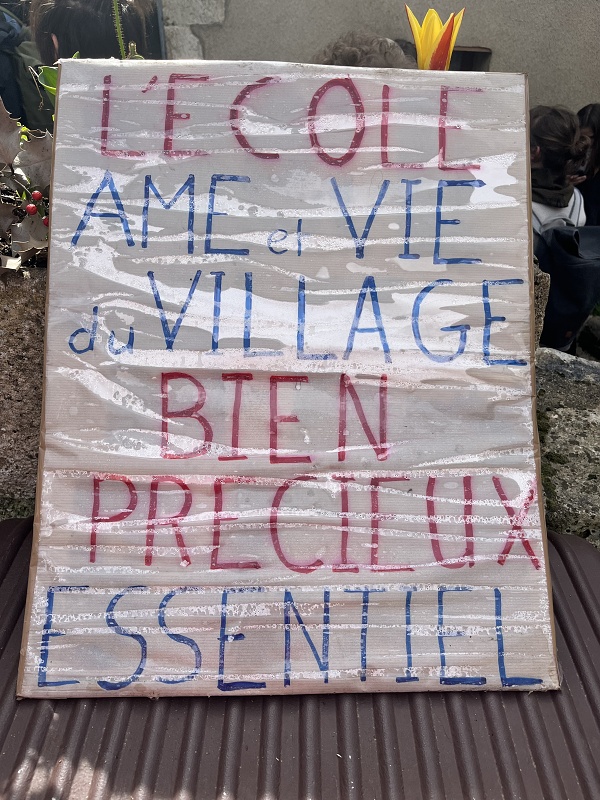 L'ECOLE
AME et VIE
du VILLAGE
BIEN
PRECIEUX
ESSENTIEL